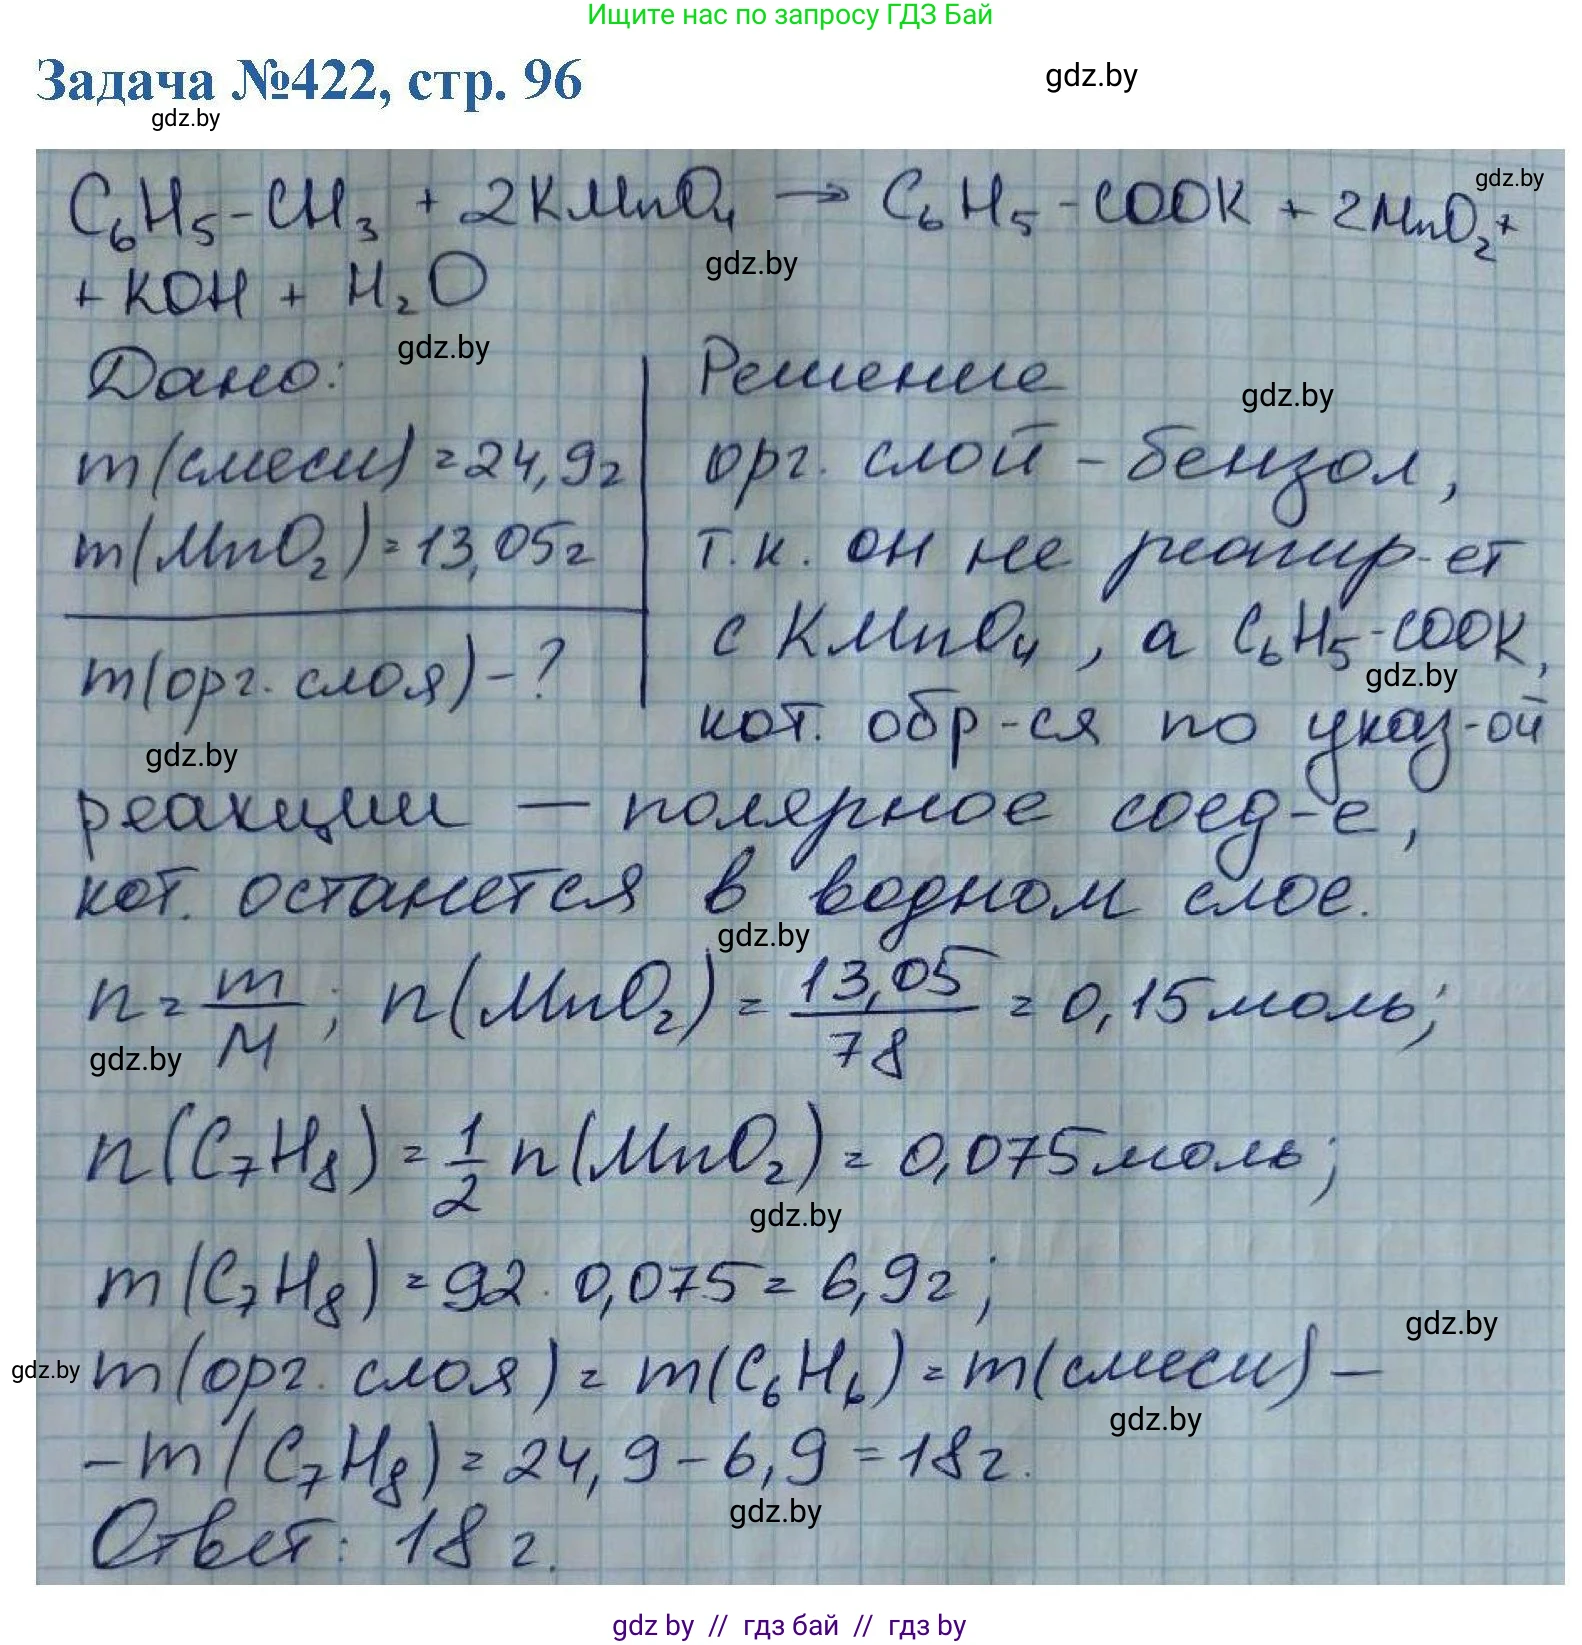 Ищите нас по запросу ГДЗ Бай
Задача №422, стр. 96
gdz.by
gdz.by
gdz.by
C₆H₅-CH₃ + 2KMnO₄ → C₆H₅-COOK + 2MnO₂+
+ KOH + H₂O
gdz.by
gdz.by
Дано:
Решение
gdz.by
m(смеси)=24,9г
орг. слой - бензол,
m(MnO₂)=13,05г
т.к. он не реагир-ет
с KMnO₄, а C₆H₅-COOK,
m(орг. слоя)-?
gdz.by
кот. обр-ся по указ-ой
gdz.by
реакции — полярное соед-е,
кот. останется в водном слое.
gdz.by
n = m/M; n(MnO₂) = 13,05/78 = 0,15моль;
gdz.by
n(C₇H₈) = 1/2 n(MnO₂) = 0,075моль;
gdz.by
m(C₇H₈) = 92 · 0,075 = 6,9г;
gdz.by
gdz.by
m(орг. слоя) = m(C₆H₆) = m(смеси) —
gdz.by
- m(C₇H₈) = 24,9 - 6,9 = 18г.
gdz.by
Ответ: 18 г.
gdz by // гдз бай // гдз by